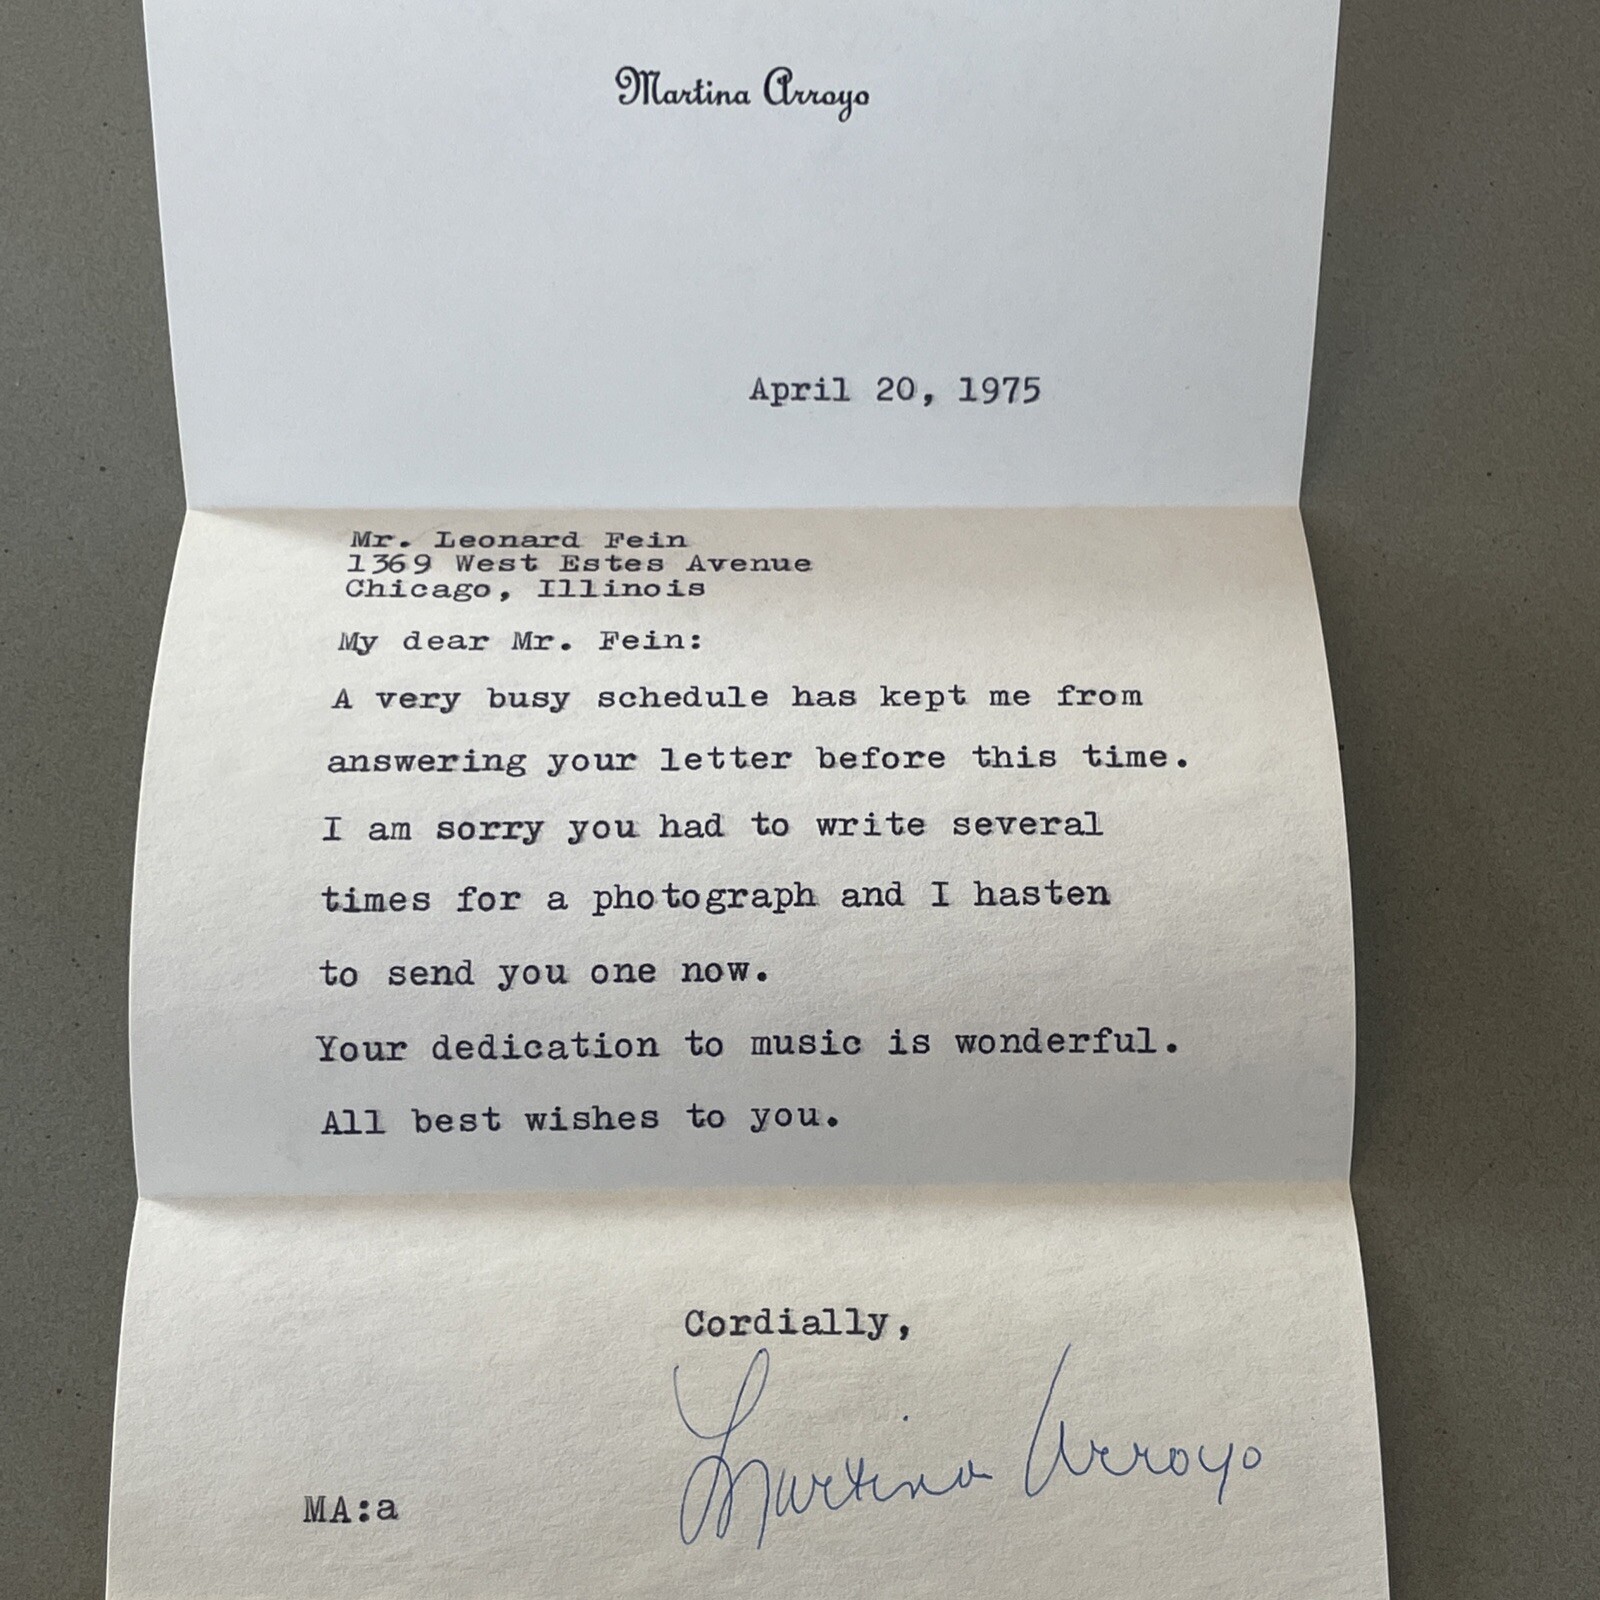 Martina Arroyo
April 20, 1975
Mr. Leonard Fein
1369 West Estes Avenue
Chicago, Illinois
My dear Mr. Fein:
A very busy schedule has kept me from
answering your letter before this time.
I am sorry you had to write several
times for a photograph and I hasten
to send you one now.
Your dedication to music is wonderful.
All best wishes to you.
Cordially,
Martina Arroyo
MA:a